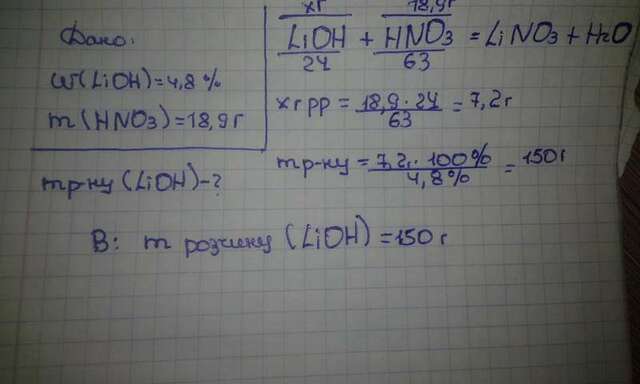 Дано:
w(LiOH)=4,8%
m(HNO3)=18,9г
mр-ну(LiOH)-?
xг 18,9г
LiOH + HNO3 = LiNO3 + H2O
24 63
xг рр = 18,9·24 / 63 = 7,2г
mр-ну = 7,2г · 100% / 4,8% = 150г
В: m розчину (LiOH) = 150г